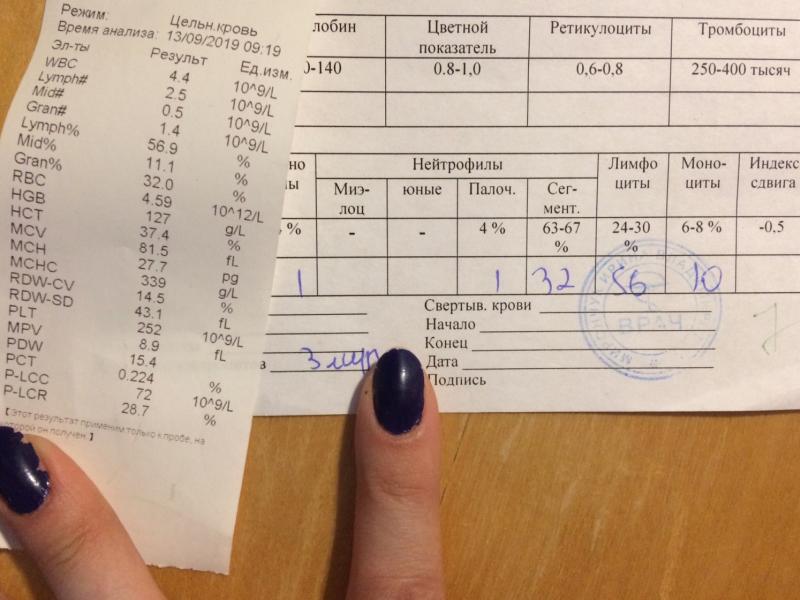 Режим: Цельн.кровь
Время анализа: 13/09/2019 09:19
Эл-ты Результ Ед.изм.
WBC 4.4 10^9/L
Lymph# 2.5 10^9/L
Mid# 0.5 10^9/L
Gran# 1.4 10^9/L
Lymph% 56.9 %
Mid% 11.1 %
Gran% 32.0 %
RBC 4.59 10^12/L
HGB 127 g/L
HCT 37.4 %
MCV 81.5 fL
MCH 27.7 pg
MCHC 339 g/L
RDW-CV 14.5 %
RDW-SD 43.1 fL
PLT 252 10^9/L
MPV 8.9 fL
PDW 15.4
PCT 0.224 %
P-LCC 72 10^9/L
P-LCR 28.7 %
【Этот результат применим только к пробе, на
которой он получен.】
лобин Цветной показатель Ретикулоциты Тромбоциты
0-140 0.8-1,0 0,6-0,8 250-400 тысяч
но Нейтрофилы Лимфо Моно- Индекс
ы Миэ- юные Палоч. Сег- циты циты сдвига
лоц мент.
% - - 4 % 63-67 24-30 6-8 % -0,5
% %
1 1 32 56 10
Свертыв. крови
Начало
Конец
в 3 мин Дата
Подпись
ВРАЧ